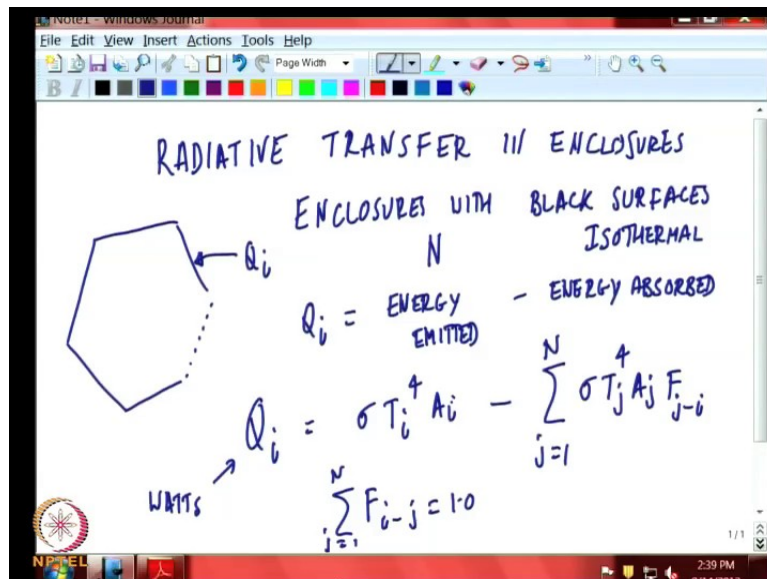 Note1 - Windows Journal
File Edit View Insert Actions Tools Help
Page Width
B I
RADIATIVE TRANSFER IN ENCLOSURES
ENCLOSURES WITH BLACK SURFACES
N ISOTHERMAL
Qi
Qi = ENERGY EMITTED - ENERGY ABSORBED
Qi = σ Ti^4 Ai - Σ_{j=1}^{N} σ Tj^4 Aj F_{j-i}
WATTS
Σ_{j=1}^{N} F_{i-j} = 1.0
1/1
NPTEL
2:39 PM